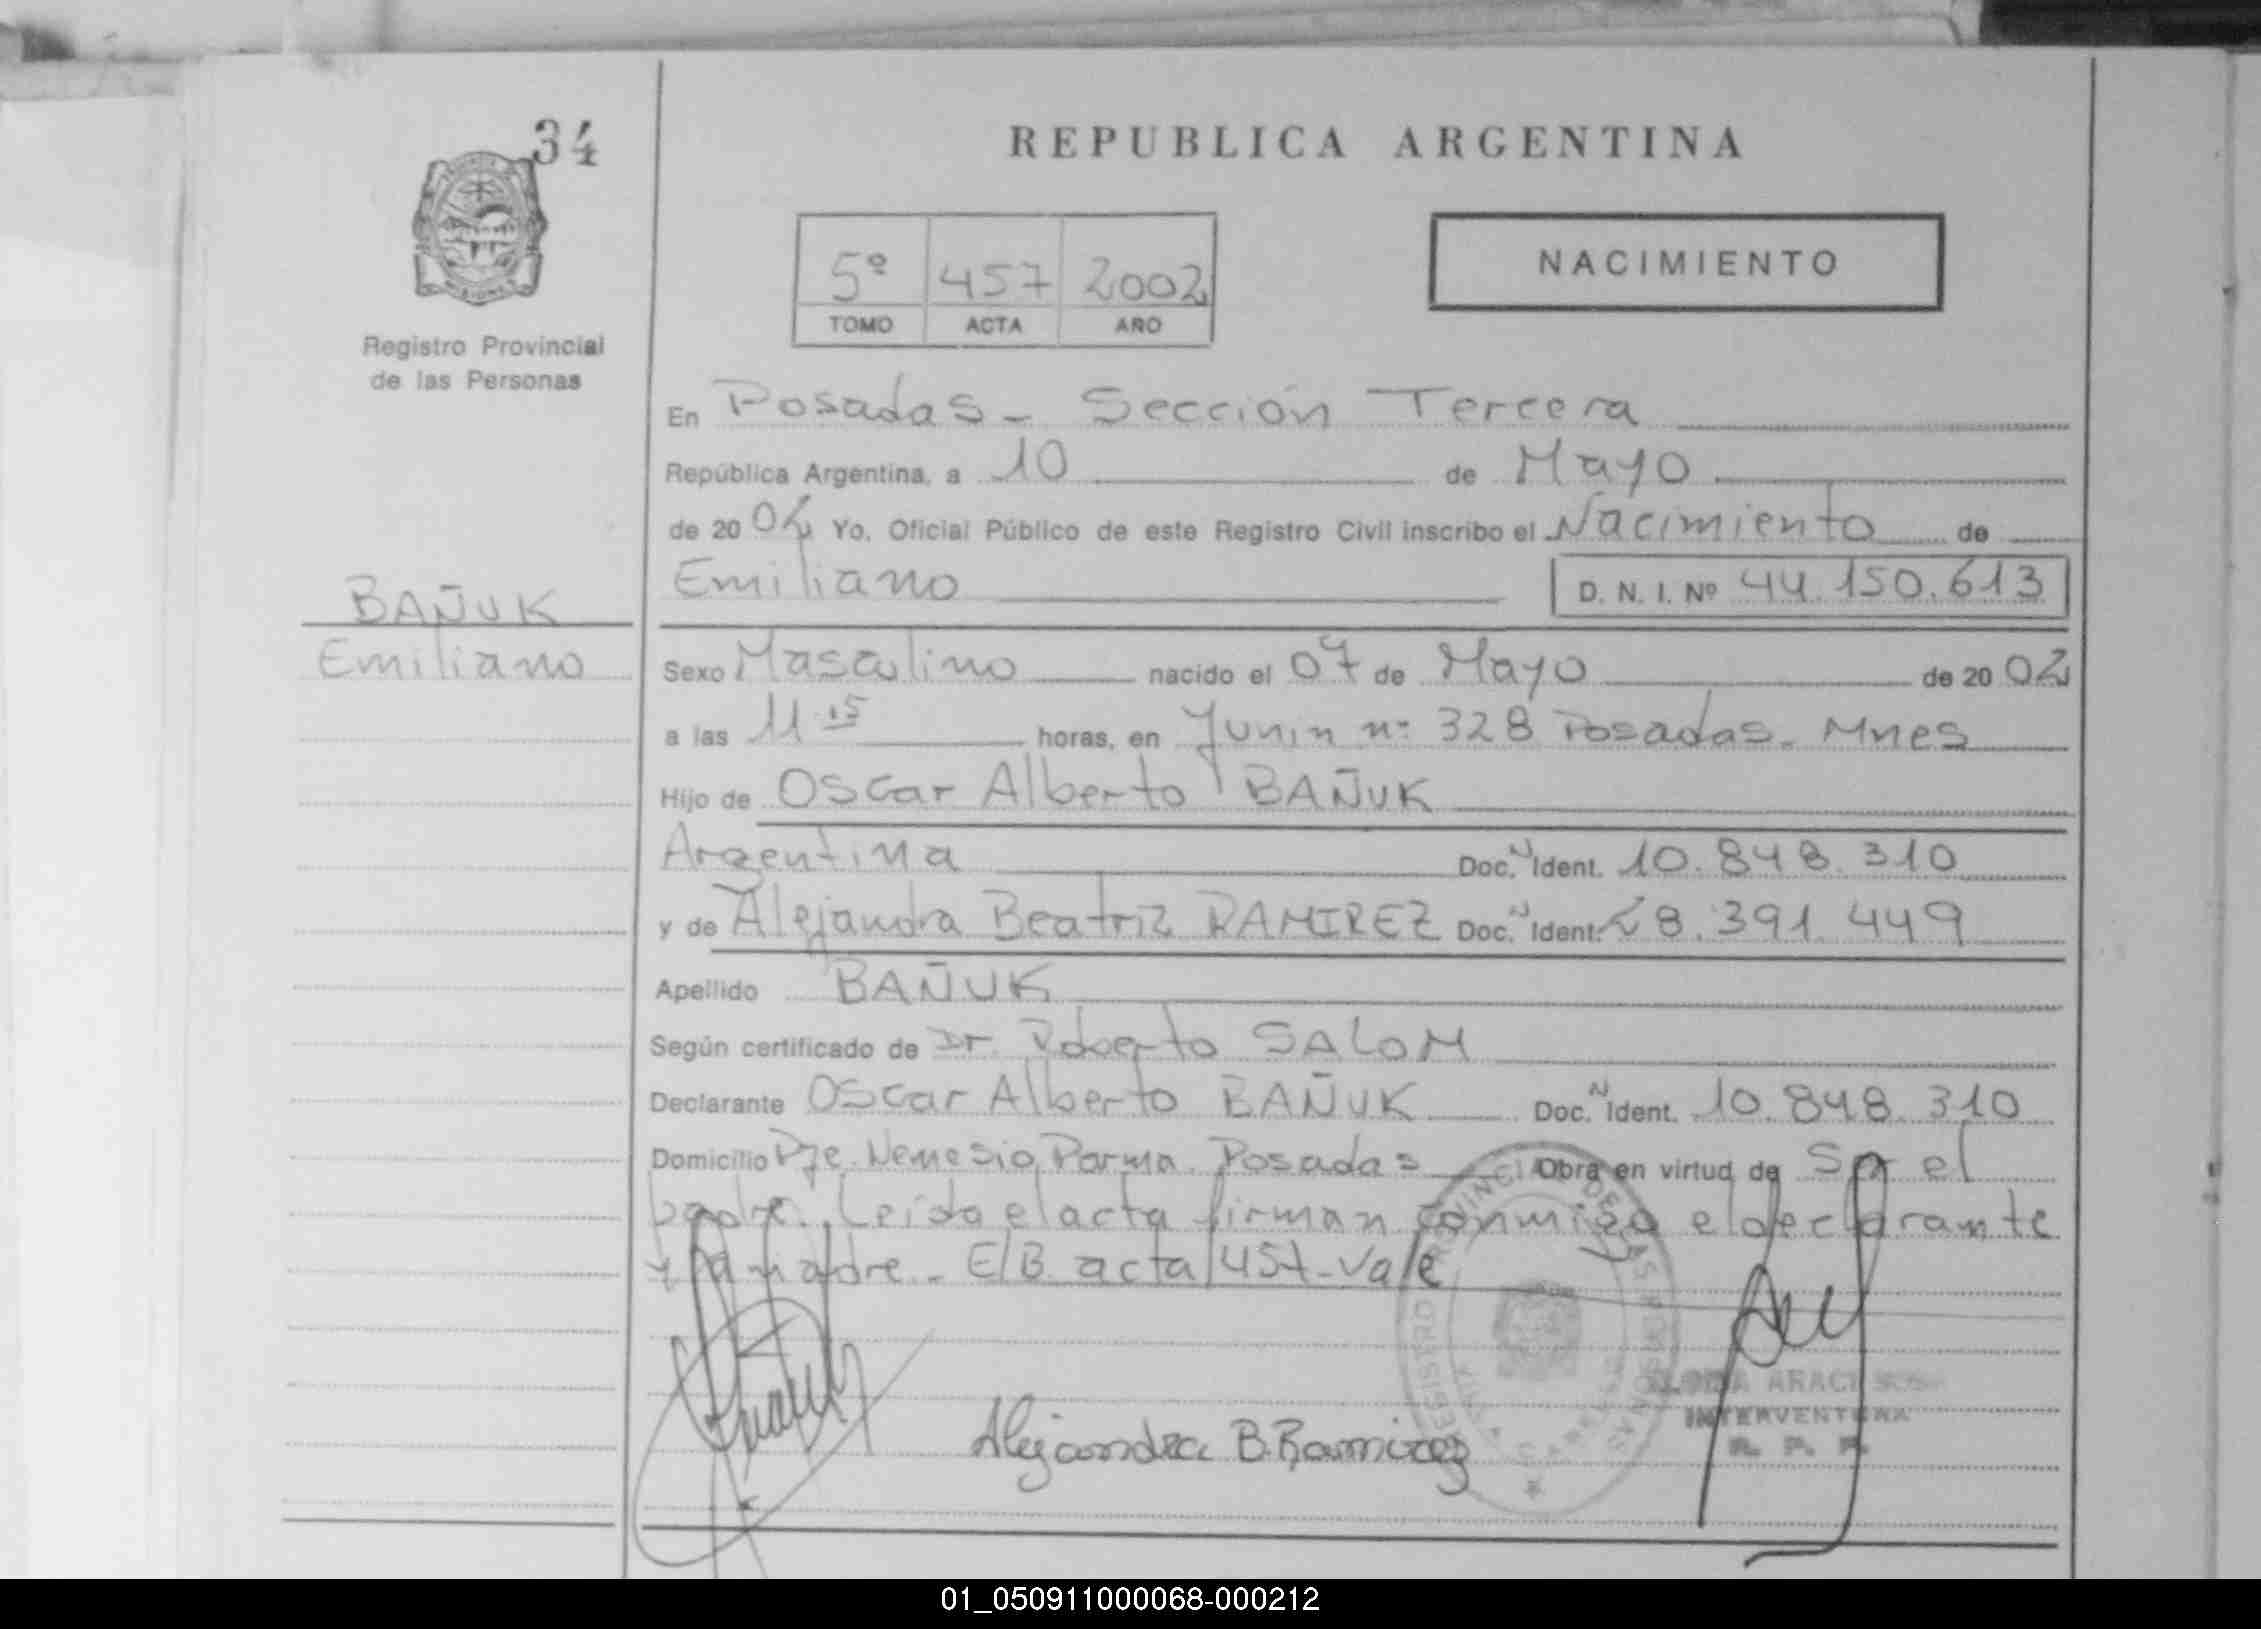 34
REPUBLICA ARGENTINA
5º 457 2002
TOMO ACTA AÑO
NACIMIENTO
Registro Provincial
de las Personas
En Posadas - Sección Tercera
República Argentina, a 10 de Mayo
de 20 02 Yo, Oficial Público de este Registro Civil inscribo el Nacimiento de
Emiliano D. N. I. Nº 44.150.613
BAÑUK
Emiliano
Sexo Masculino nacido el 07 de Mayo de 20 02
a las 11 15 horas, en Junin nº 328 Posadas. Mnes
Hijo de Oscar Alberto BAÑUK
Argentina Doc. N Ident. 10.848.310
y de Alejandra Beatriz RAMIREZ Doc. N Ident. 28.391.449
Apellido BAÑUK
Según certificado de Dr. Roberto SALOM
Declarante Oscar Alberto BAÑUK Doc. N Ident. 10.848.310
Domicilio Pje. Nemesio Parma. Posadas Obra en virtud de Ser el
padre. Leída el acta firman conmigo el declarante
y la madre. E/B. acta/457-Vale
Alejandra B. Ramirez
REGISTRO PROVINCIAL DE LAS PERSONAS
INTERVENTORA
R. P. P.
01_050911000068-000212